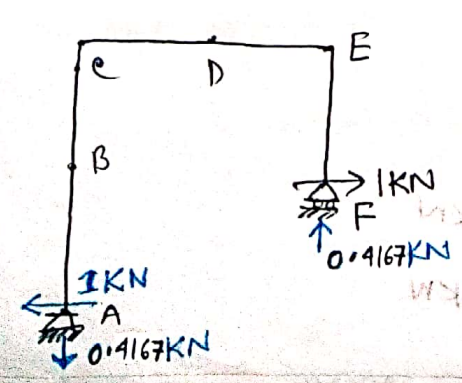 E
C
D
B
1KN
F
0.4167KN
1KN
A
0.4167KN